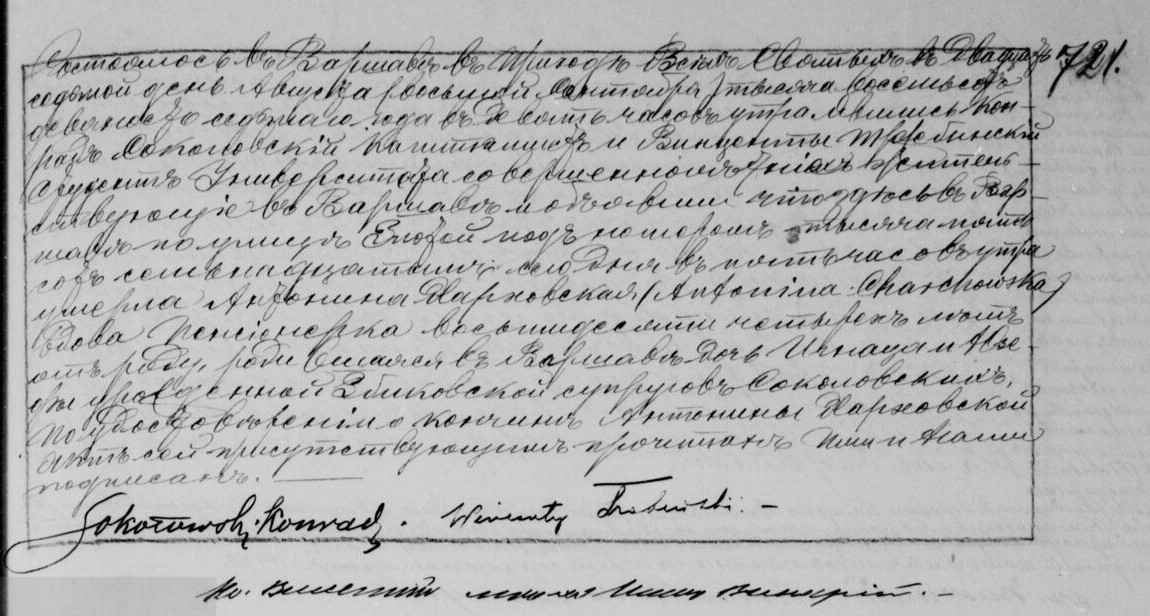 Состоялось въ Варшавѣ въ Приходѣ Всѣхъ Святыхъ въ Двадцать 721.
седьмой день Августа (восьмой Сентября) тысяча восемьсотъ
девяносто седьмаго года въ девять часовъ утра. Явились Кон-
радъ Соколовскій Капиталистъ и Винценты Трембинскій
студентъ Университета совершеннолѣтніе жительь-
ствующіе въ Варшавѣ и объявили что здѣсь въ Вар-
шавѣ по улицѣ Злотой подъ номеромъ тысяча пять
сотъ семьнадцатымъ сего дня въ пять часовъ утра
умерла Антонина Харховская (Antonina Charchowska)
вдова Пенсіонерка восьмидесяти четырехъ лѣтъ
отъ роду, родившаяся въ Варшавѣ дочь Игнаца и Юзе-
фы урожденной супруговъ Соколовскихъ.
По удостовѣреніи о кончинѣ Антонины Харховской
актъ сей присутствующимъ прочитанъ Ими и Нами
подписанъ.
Sokołowski Konrad. Wincenty